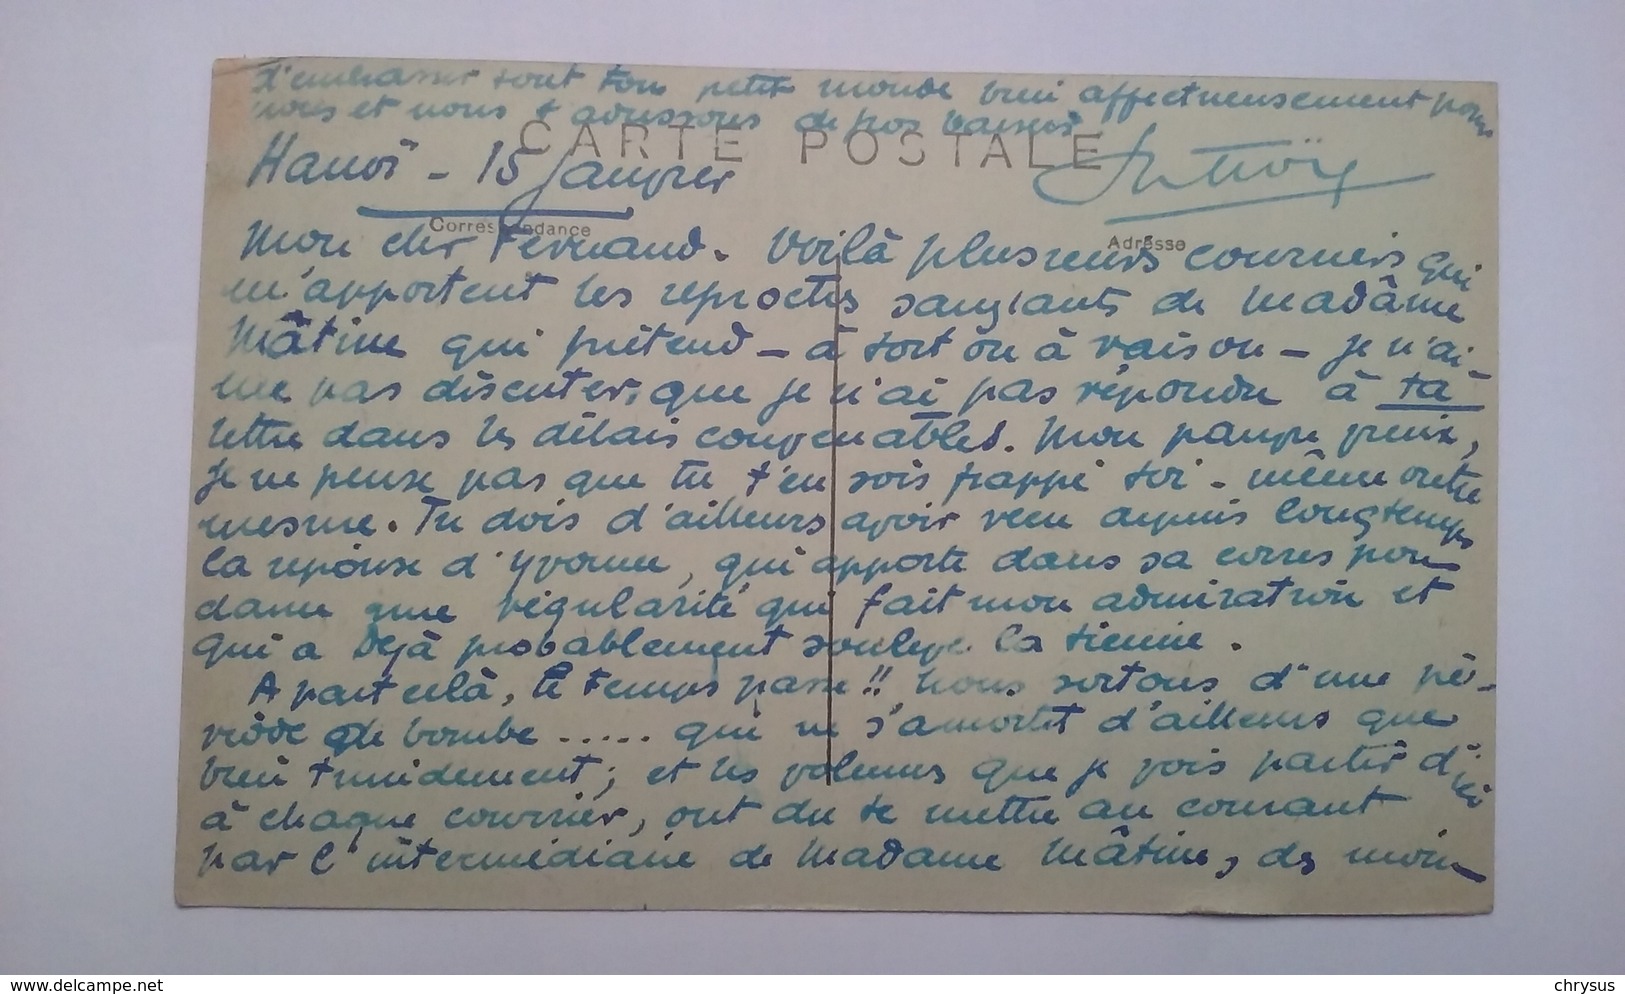 d'embrasser tout ton petit monde bien affectueusement pour
nous et nous t'adressons de bons baisers
CARTE POSTALE
Hanoï - 15 Janvier
Correspondance
Adresse
Mon cher Fernand. Voilà plusieurs courriers qui
m'apportent les reproches sanglants de Madâme
Mâtine qui prétend - à tort ou à raison - je n'ai-
me pas discuter, que je n'ai pas répondu à ta
lettre dans les délais convenables. Mon pauvre vieux,
je ne pense pas que tu t'en sois frappé toi-même outre
mesure. Tu dois d'ailleurs avoir reçu depuis longtemps
la réponse d'Yvonne, qui apporte dans sa correspon
dance une régularité qui fait mon admiration et
qui a déjà probablement soulevé la tienne.
A part celà, le temps passe!! Nous sortons d'une pé-
riode de bombe ..... qui ne s'amortit d'ailleurs que
bien timidement; et les volumes que je vois partir d'ici
à chaque courrier, ont du te mettre au courant
par l'intermédiaire de Madame Mâtine, des moin-
chrysus